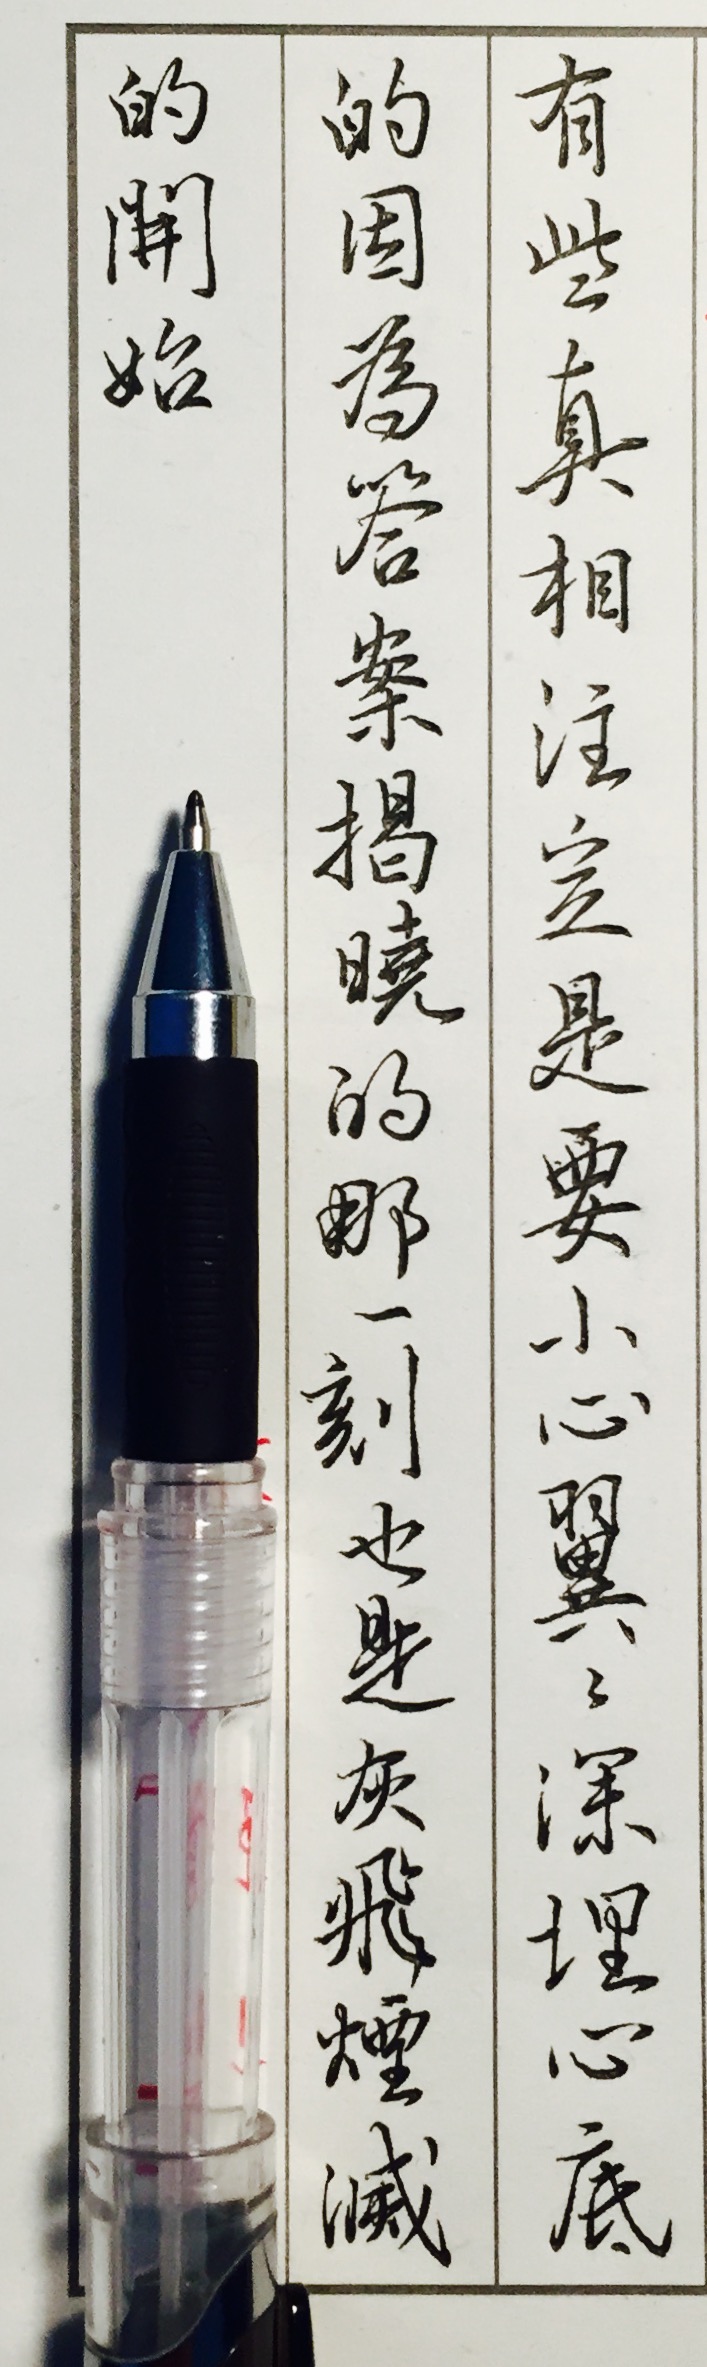 有些真相注定是要小心翼〻深埋心底
的因為答案揭曉的那一刻也是灰飛煙滅
的開始